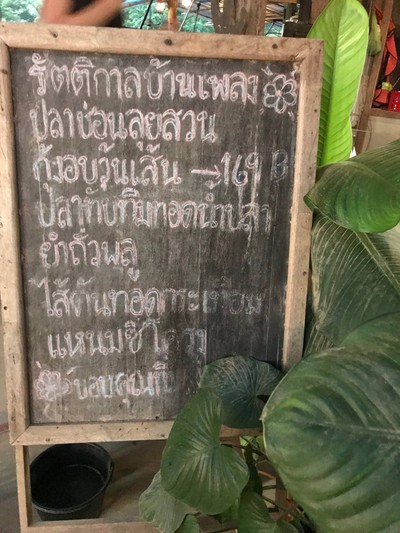 รัตติกาลบ้านเพลง
ปลาช่อนลุยสวน
กุ้งอบวุ้นเส้น → 169 ฿
ปลาทับทิมทอดน้ำปลา
ยำถั่วพลู
ไส้ตันทอดกระเทียม
แหนมซี่โครง
ขอบคุณ